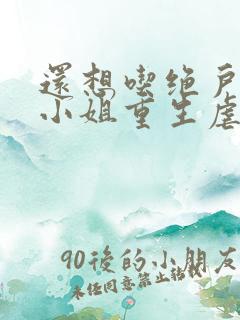 還想喫绝戶
小姐重生虐
90後的小朋友
未经同意禁止转载